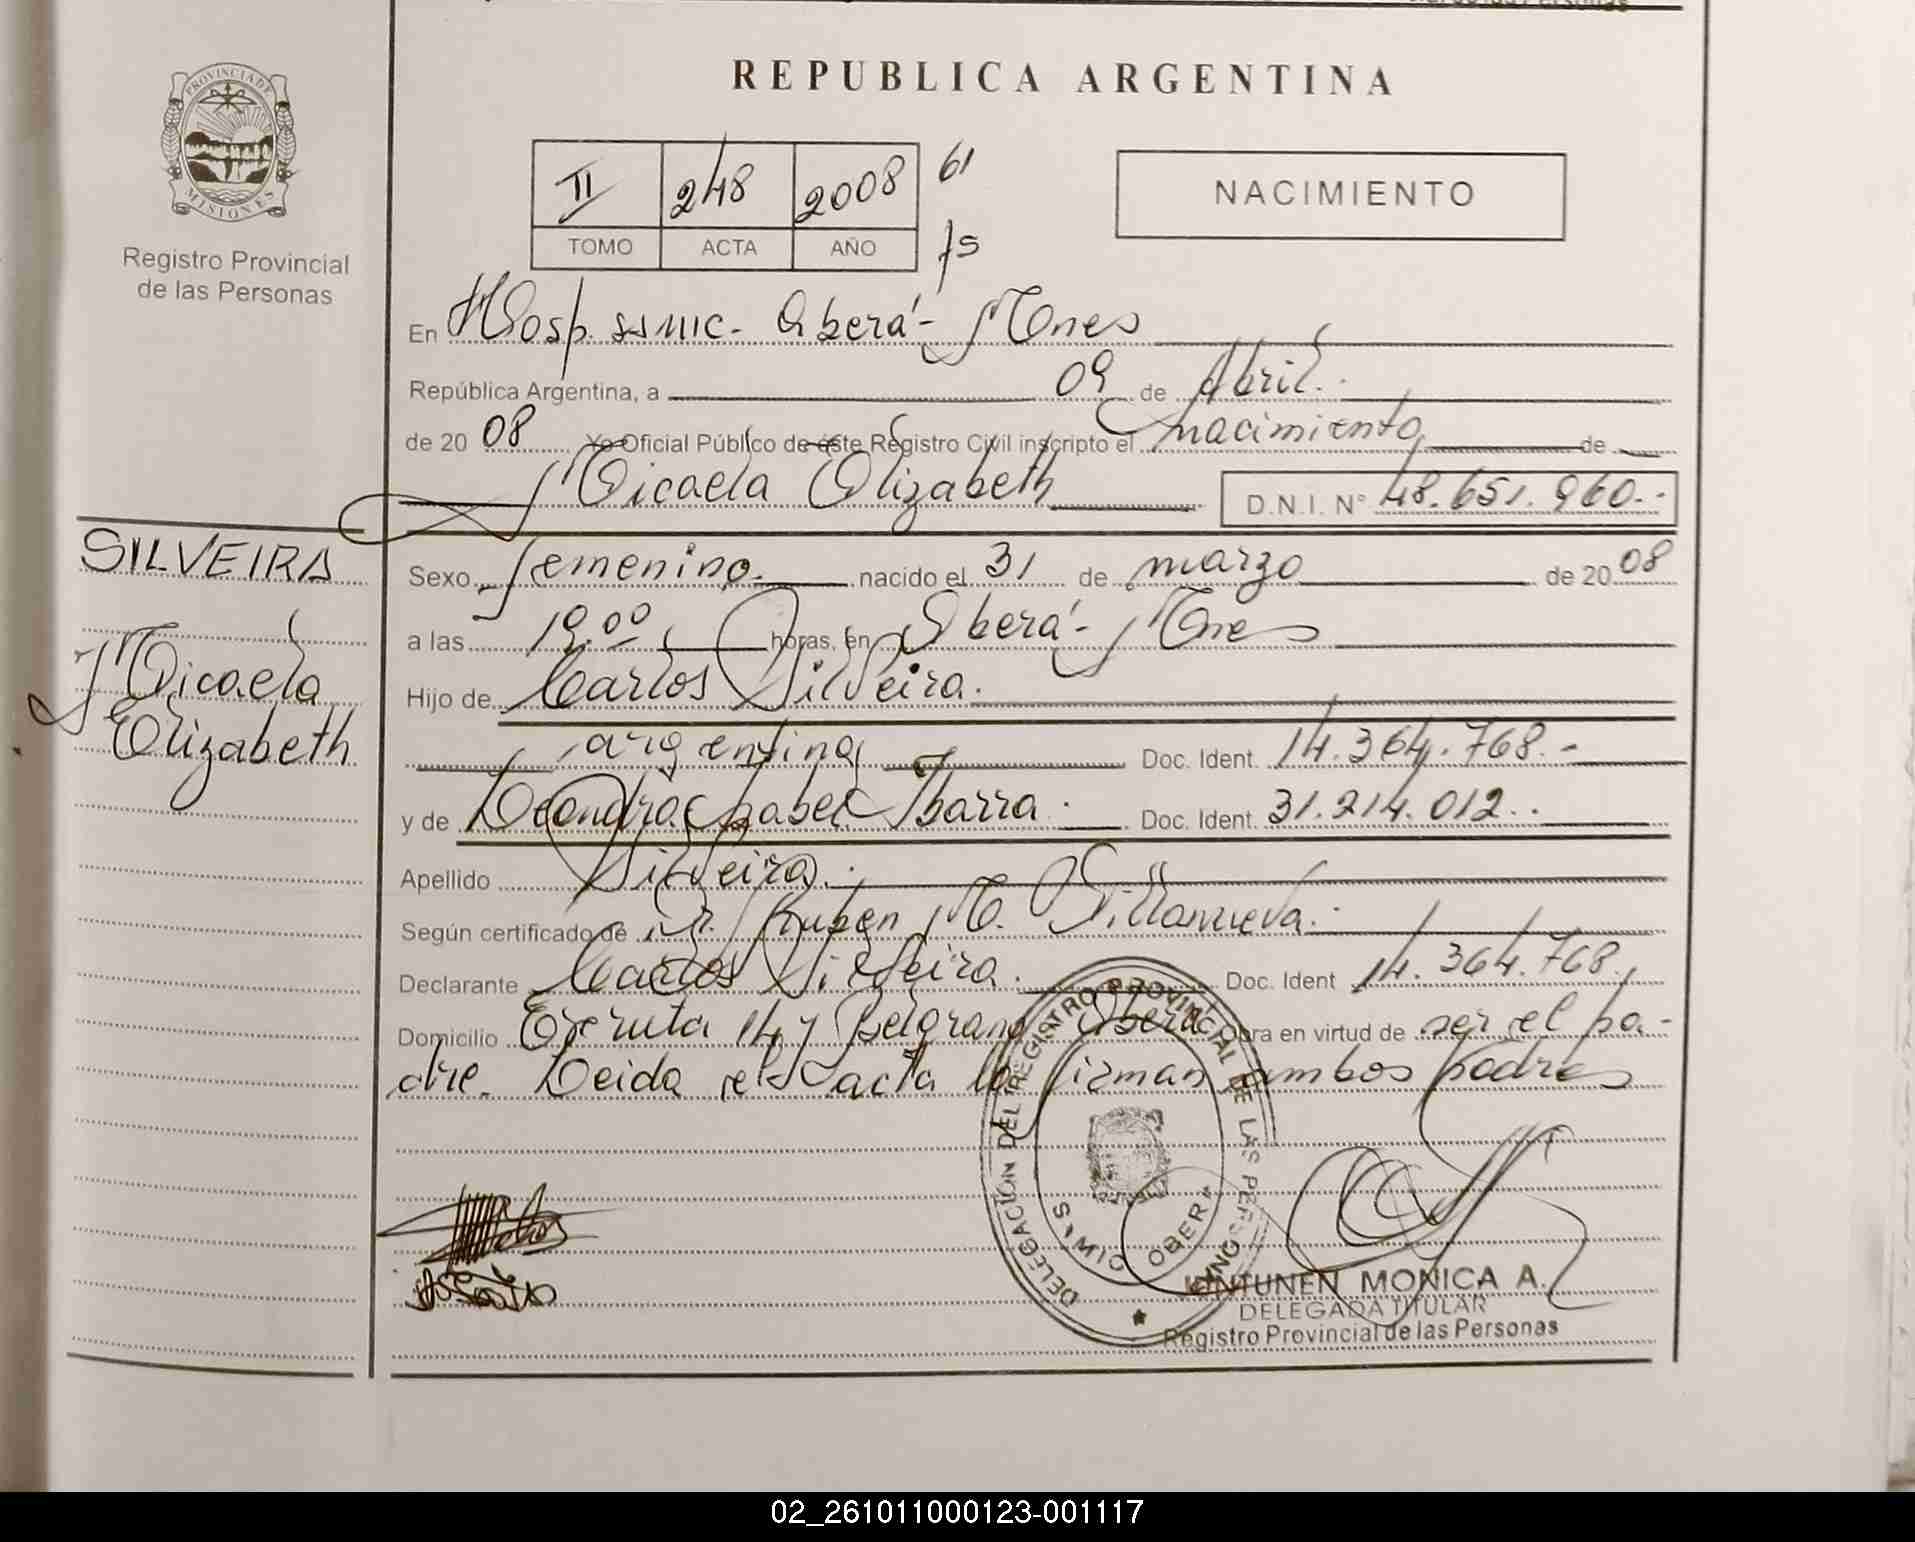 REPUBLICA ARGENTINA
PROVINCIA DE
MISIONES
Registro Provincial
de las Personas
II 248 2008 61
TOMO ACTA AÑO fs
NACIMIENTO
En Hosp. SSMIC - Oberá - Mnes
República Argentina, a 09 de Abril
de 2008 Yo Oficial Público de éste Registro Civil inscripto el nacimiento de
Micaela Elizabeth D.N.I. Nº 48.651.960.-
SILVEIRA
Micaela
Elizabeth
Sexo femenino. nacido el 31 de marzo de 2008
a las 19.00 horas, en Oberá - Mnes
Hijo de Carlos Silveira.
argentina Doc. Ident. 14.364.768.-
y de Leandra Isabel Ibarra. Doc. Ident. 31.214.012.-
Apellido Silveira.
Según certificado de Dr. Ruben M. Villanueva.
Declarante Carlos Silveira. Doc. Ident 14.364.768
Domicilio 147 Belgrano Oberá Obra en virtud de ser el pa-
dre. Leida el acta la firman ambos padres
DELEGACION DEL REGISTRO PROVINCIAL DE LAS PERSONAS
OBERA
MONICA A.
DELEGADA TITULAR
Registro Provincial de las Personas
02_261011000123-001117